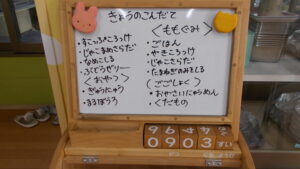 きょうのこんだて
・すこっぷころっけ
・じゃこまめさらだ
・なめこしる
・ぶどうゼリー
＜おやつ＞
・ぎゅうにゅう
・まるぼうろ
＜ももぐみ＞
・ごはん
・やきころっけ
・じゃこさらだ
・たまねぎのみそしる
＜ごごしょく＞
・おやさいにゅうめん
・くだもの
0903すい